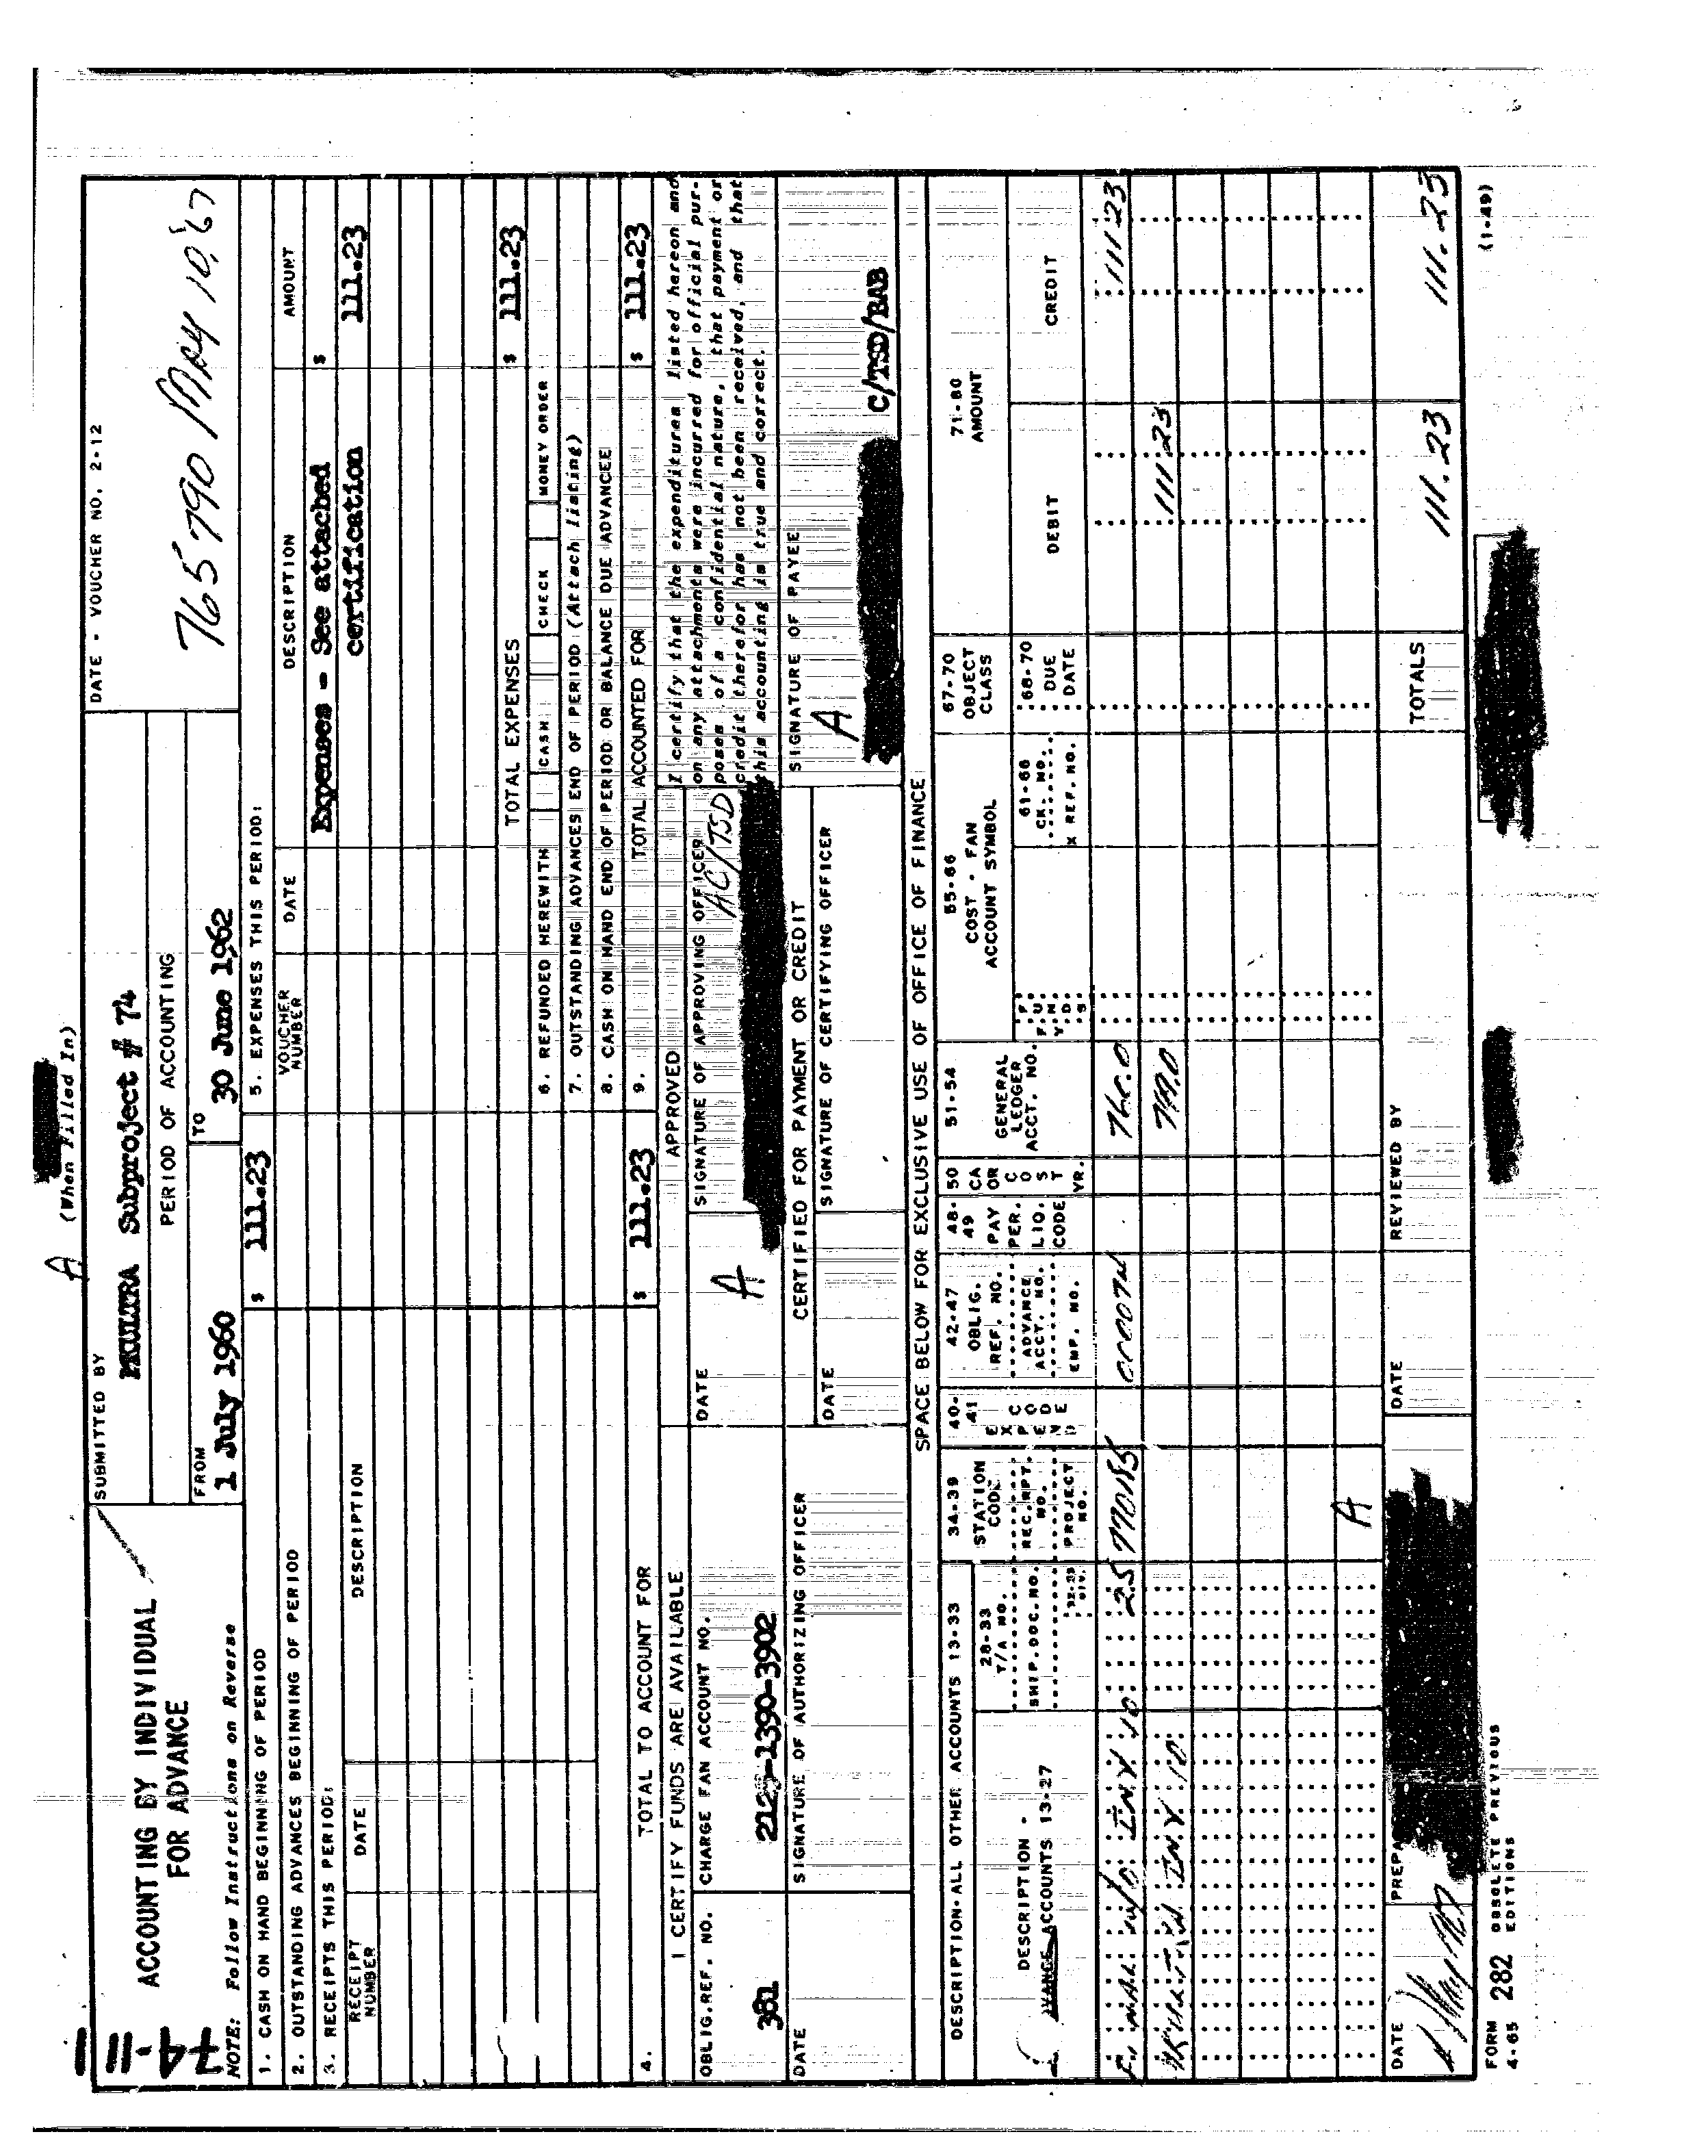 A
(When Filled In)
74-III
ACCOUNTING BY INDIVIDUAL
FOR ADVANCE
NOTE: Follow Instructions on Reverse
SUBMITTED BY
MKULTRA Subproject # 74
PERIOD OF ACCOUNTING
FROM
1 July 1960
TO
30 June 1962
DATE - VOUCHER NO. 2-12
765790 May 10, 67
1. CASH ON HAND BEGINNING OF PERIOD
$ 111.23
2. OUTSTANDING ADVANCES BEGINNING OF PERIOD
3. RECEIPTS THIS PERIOD:
RECEIPT NUMBER
DATE
DESCRIPTION
4. TOTAL TO ACCOUNT FOR
$ 111.23
5. EXPENSES THIS PERIOD:
VOUCHER NUMBER
DATE
DESCRIPTION
AMOUNT
Expenses - See attached $
certification 111.23
TOTAL EXPENSES $ 111.23
6. REFUNDED HEREWITH CASH CHECK MONEY ORDER
7. OUTSTANDING ADVANCES END OF PERIOD (Attach listing)
8. CASH ON HAND END OF PERIOD OR BALANCE DUE ADVANCEE
9. TOTAL ACCOUNTED FOR $ 111.23
I CERTIFY FUNDS ARE AVAILABLE
OBLIG. REF. NO.
381
CHARGE FAN ACCOUNT NO.
2125-1390-3902
DATE
SIGNATURE OF AUTHORIZING OFFICER
APPROVED
DATE
SIGNATURE OF APPROVING OFFICER
A
AC/TSD
CERTIFIED FOR PAYMENT OR CREDIT
DATE
SIGNATURE OF CERTIFYING OFFICER
I certify that the expenditures listed hereon and
on any attachments were incurred for official pur-
poses of a confidential nature, that payment or
credit therefor has not been received, and that
this accounting is true and correct.
SIGNATURE OF PAYEE
A
C/TSD/BAB
SPACE BELOW FOR EXCLUSIVE USE OF OFFICE OF FINANCE
DESCRIPTION-ALL OTHER ACCOUNTS 13-33
DESCRIPTION -
ADVANCE ACCOUNTS 13-27
28-33
T/A NO.
SHIP. DOC. NO.
32-33
DIV.
34-39
STATION
CODE
REC.RPT.
NO.
PROJECT
NO.
40-
41
EXPEND
CODE
42-47
OBLIG.
REF. NO.
ADVANCE
ACCT. NO.
EMP. NO.
48-
49
PAY
PER.
LIQ.
CODE
50
CA
OR
COST
YR.
51-54
GENERAL
LEDGER
ACCT. NO.
55-66
COST - FAN
ACCOUNT SYMBOL
FUNDS
61-66
CK. NO.
X REF. NO.
67-70
OBJECT
CLASS
68-70
DUE
DATE
71-80
AMOUNT
DEBIT
CREDIT
25
111 23
111 23
A
TOTALS
111.23
111.23
DATE
DATE
REVIEWED BY
FORM
4-65
282
OBSOLETE PREVIOUS
EDITIONS
(1-49)